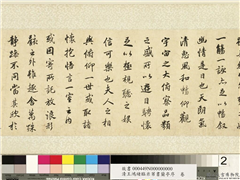 一觴一詠亦足以暢叙
幽情是日也天朗氣
清惠風和暢仰觀
宇宙之大俯察品類
之盛所以遊目騁懷
足以極視聽之娛
信可樂也夫人之相
與俯仰一世或取諸
懷抱悟言一室之內
或因寄所託放浪形
骸之外雖趣舍萬殊
靜躁不同當其欣於
2